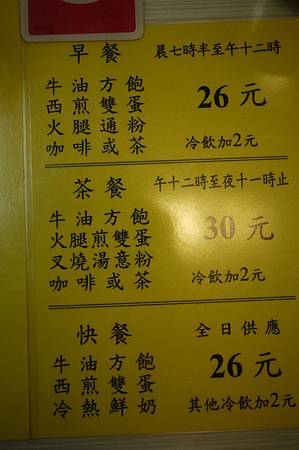 早餐 晨七時半至午十二時
牛油方飽
西煎雙蛋 26元
火腿通粉
咖啡或茶 冷飲加2元
茶餐 午十二時至夜十一時止
牛油方飽
火腿煎雙蛋 30元
叉燒湯意粉
咖啡或茶 冷飲加2元
快餐 全日供應
牛油方飽 26元
西煎雙蛋
冷熱鮮奶 其他冷飲加2元